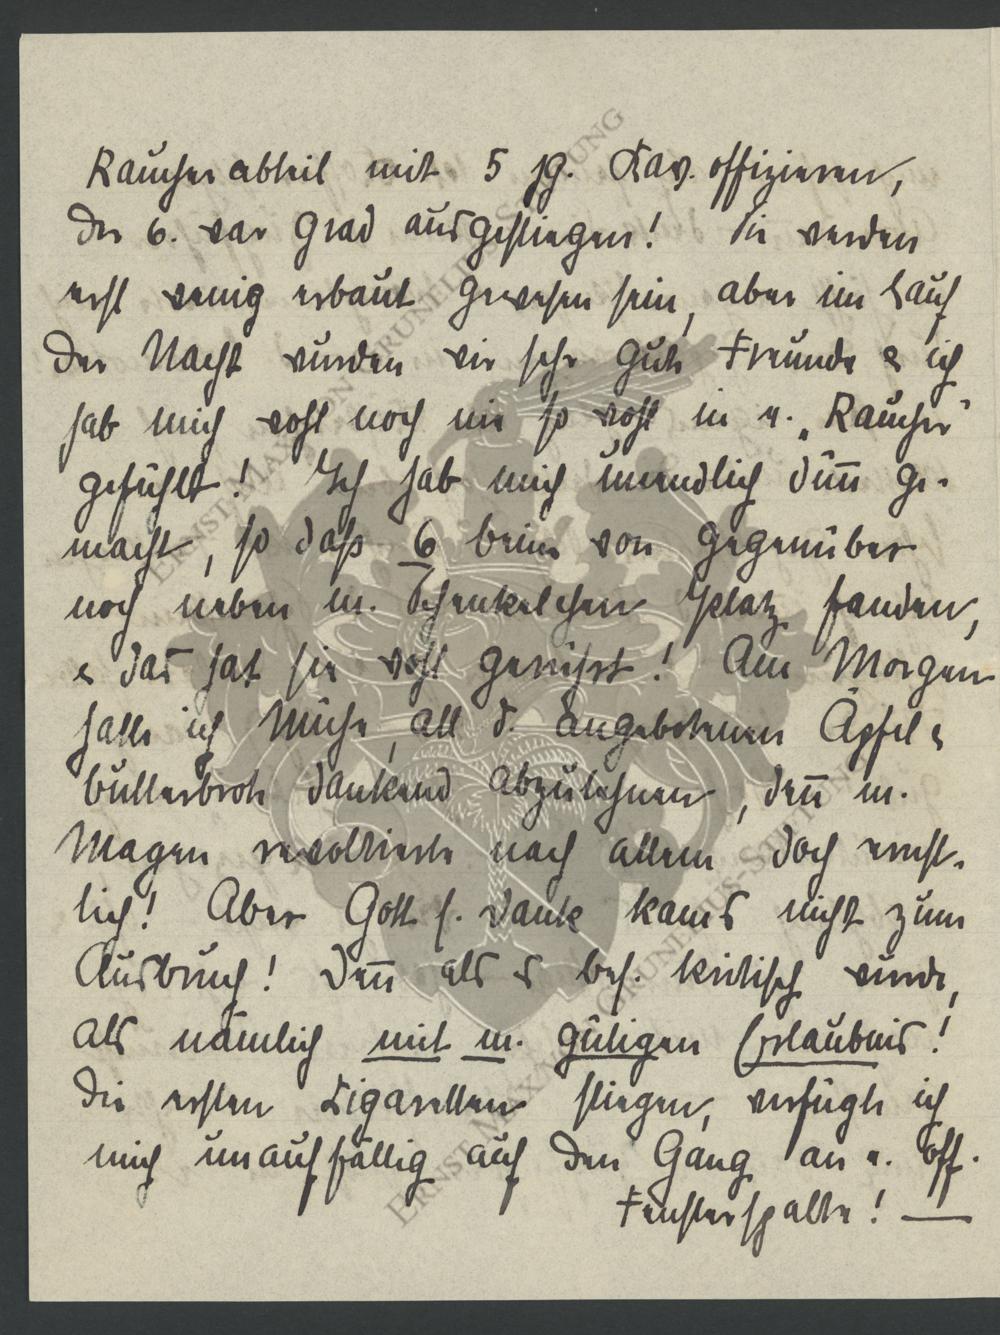 Raucherabteil mit 5 jg. Kav. offizieren,
der 6. war grad ausgestiegen! Sie werden
erst wenig erbaut gewesen sein, aber im Lauf
der Nacht wurden wir sehr gute Freunde & ich
hab mich wohl noch nie so wohl in e. „Raucher"
gefühlt! Ich hab mich unendlich dün̅ ge-
macht, so daß 6 beine von gegenüber
noch neben m. Schenkelchen Platz fanden,
& das hat sie wohl gerührt! Am Morgen
hatte ich Mühe, all d. angebotenen Äpfel &
butterbrote dankend abzulehnen, den̅ m.
Magen revoltierte nach allem doch ernst-
lich! Aber Gott s. dank kams nicht zum
Ausbruch! Den̅ als es bes. kritisch wurde,
als nämlich mit m. gütigen Erlaubnis!
die ersten Zigaretten stiegen, verfügte ich
mich unauffällig auf den Gang an e. off.
Fensterspalte! —
ERNST MAX VON GRUNELIUS-STIFTUNG
ERNST MAX VON GRUNELIUS-STIFTUNG